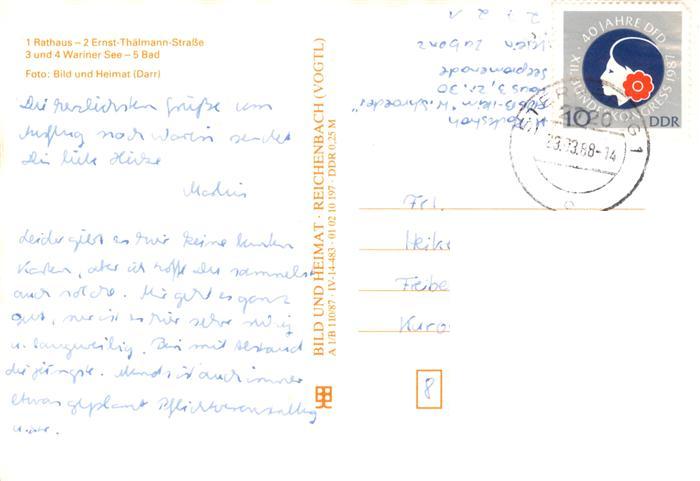 1 Rathaus – 2 Ernst-Thälmann-Straße
3 und 4 Wariner See – 5 Bad
Foto: Bild und Heimat (Darr)
Die herzlichsten Grüße vom
Ausflug nach Warin sendet
Dir liebe Heike
Leider gibt es hier keine bunten
Karten, aber ich hoffe Du sammelst
auch solche. Mir geht es ganz
gut, nur ist es hier sehr ruhig
u. langweilig. Bin mit Abstand
die jüngste. Abends ist auch immer
etwas geplant Pflichtveranstaltung
u.s.w.
BILD UND HEIMAT · REICHENBACH (VOGTL)
A 1/B 110/87 · IV-14-483 · 01 02 10 197 · DDR 0,25 M
Seepromenade
Haus 3, Zi. 30
XII. BUNDESKONGRESS 1987
40 JAHRE DFD
10 DDR
88-14
Frl.
Heike
Freibe
Kuro
8